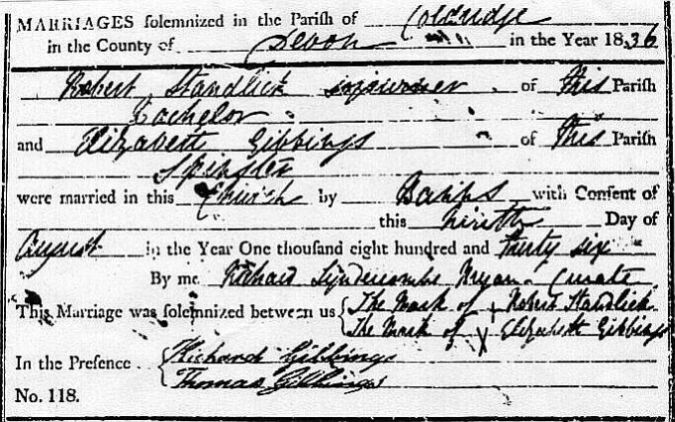 MARRIAGES solemnized in the Parish of Coldridge
in the County of Devon in the Year 1836
Robert Standlick sojourner of this Parish
Bachelor
and Elizabeth Gibbings of this Parish
Spinster
were married in this Church by Banns with Consent of
this Ninth Day of
August in the Year One thousand eight hundred and thirty six
By me Richard Bryan Curate
This Marriage was solemnized between us { The Mark of X Robert Standlick
The Mark of X Elizabeth Gibbings
In the Presence { Richard Gibbings
Thomas Gibbings
No. 118.